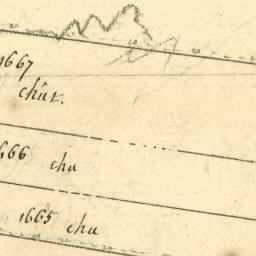 1667
chút.
1666 chu
1665 chu